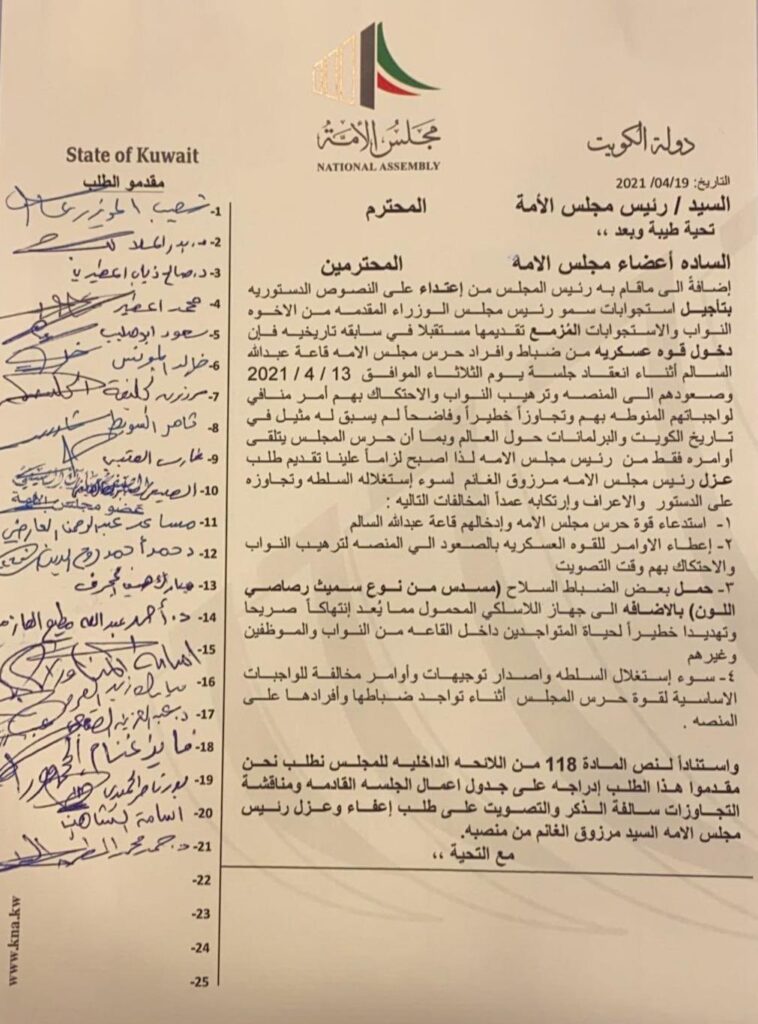 مجلس الأمة
NATIONAL ASSEMBLY
دولة الكويت
State of Kuwait
التاريخ: 2021 /04/19
السيد / رئيس مجلس الأمة المحترم
تحية طيبة وبعد ،،
الساده أعضاء مجلس الامه المحترمين
إضافةً الى ماقام به رئيس المجلس من إعتداء على النصوص الدستوريه
بتأجيل استجوابات سمو رئيس مجلس الوزراء المقدمه من الاخوه
النواب والاستجوابات المُزمع تقديمها مستقبلا في سابقه تاريخيه فإن
دخول قوه عسكريه من ضباط وافراد حرس مجلس الامه قاعة عبدالله
السالم أثناء انعقاد جلسة يوم الثلاثاء الموافق 13 / 4 / 2021
وصعودهم الى المنصه وترهيب النواب والاحتكاك بهم أمر منافي
لواجباتهم المنوطه بهم وتجاوزاً خطيراً وفاضحاً لم يسبق له مثيل في
تاريخ الكويت والبرلمانات حول العالم وبما أن حرس المجلس يتلقى
أوامره فقط من رئيس مجلس الامه لذا اصبح لزاماً علينا تقديم طلب
عزل رئيس مجلس الامه مرزوق الغانم لسوء إستغلاله السلطه وتجاوزه
على الدستور والاعراف وإرتكابه عمداً المخالفات التاليه :
١- استدعاء قوة حرس مجلس الامه وإدخالهم قاعة عبدالله السالم
٢- إعطاء الاوامر للقوه العسكريه بالصعود الي المنصه لترهيب النواب
والاحتكاك بهم وقت التصويت
٣- حمل بعض الضباط السلاح (مسدس من نوع سميث رصاصي
اللون) بالاضافه الى جهاز اللاسلكي المحمول مما يُعد إنتهاكاً صريحا
وتهديدا خطيراً لحياة المتواجدين داخل القاعه من النواب والموظفين
وغيرهم
٤- سوء إستغلال السلطه واصدار توجيهات وأوامر مخالفة للواجبات
الاساسية لقوة حرس المجلس أثناء تواجد ضباطها وأفرادها على
المنصه .
واستناداً لنص المادة 118 من اللائحه الداخليه للمجلس نطلب نحن
مقدموا هذا الطلب إدراجه على جدول اعمال الجلسه القادمه ومناقشة
التجاوزات سالفة الذكر والتصويت على طلب إعفاء وعزل رئيس
مجلس الامه السيد مرزوق الغانم من منصبه.
مع التحية ،،
مقدمو الطلب
1- شعيب المويزري
2- د. بدر الملا
3- د. صالح ذياب المطيري
4- محمد المطير
5- سعود ابوصليب
6- خالد المونس
7- مرزوق الخليفة
8- ثامر السويط
9- فارس العتيبي
10- الصيفي
عضو مجلس الامة
11- مساعد عبدالرحمن العارضي
12- د حمد أحمد روح الدين
13- مبارك هيف الحجرف
14- د. أحمد عبدالله مطيع العازمي
15- اسامة المناور
16- مبارك زيد العرو
17- د. عبدالعزيز الصقعبي
18- فايز غنام الجمهور
19- مهند
20- اسامة الشاهين
21- د. حمد محمد المطر
22-
23-
24-
25-
www.kna.kw